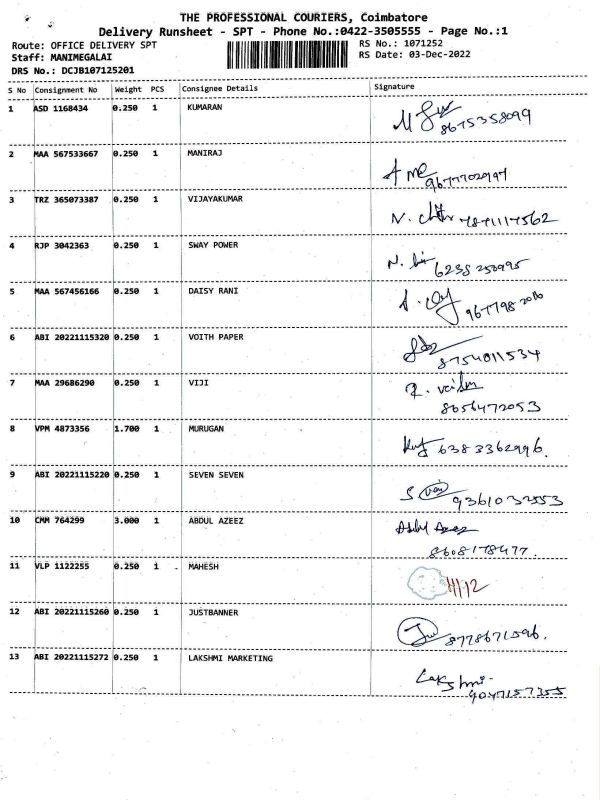 THE PROFESSIONAL COURIERS, Coimbatore
Delivery Runsheet - SPT - Phone No.:0422-3505555 - Page No.:1
Route: OFFICE DELIVERY SPT RS No.: 1071252
Staff: MANIMEGALAI RS Date: 03-Dec-2022
DRS No.: DCJB107125201
S No Consignment No Weight PCS Consignee Details Signature
1 ASD 1168434 0.250 1 KUMARAN
8675358099
2 MAA 567533667 0.250 1 MANIRAJ
9677702997
3 TRZ 365073387 0.250 1 VIJAYAKUMAR
4 RJP 3042363 0.250 1 SWAY POWER
6238 258995
5 MAA 567456166 0.250 1 DAISY RANI
6 ABI 20221115320 0.250 1 VOITH PAPER
8754011534
7 MAA 29686290 0.250 1 VIJI
8056472053
8 VPM 4873356 1.700 1 MURUGAN
6383362996.
9 ABI 20221115220 0.250 1 SEVEN SEVEN
9361032553
10 CMM 764299 3.000 1 ABDUL AZEEZ
8608178477.
11 VLP 1122255 0.250 1 MAHESH
12 ABI 20221115260 0.250 1 JUSTBANNER
8778671596.
13 ABI 20221115272 0.250 1 LAKSHMI MARKETING
Lakshmi
9047157355